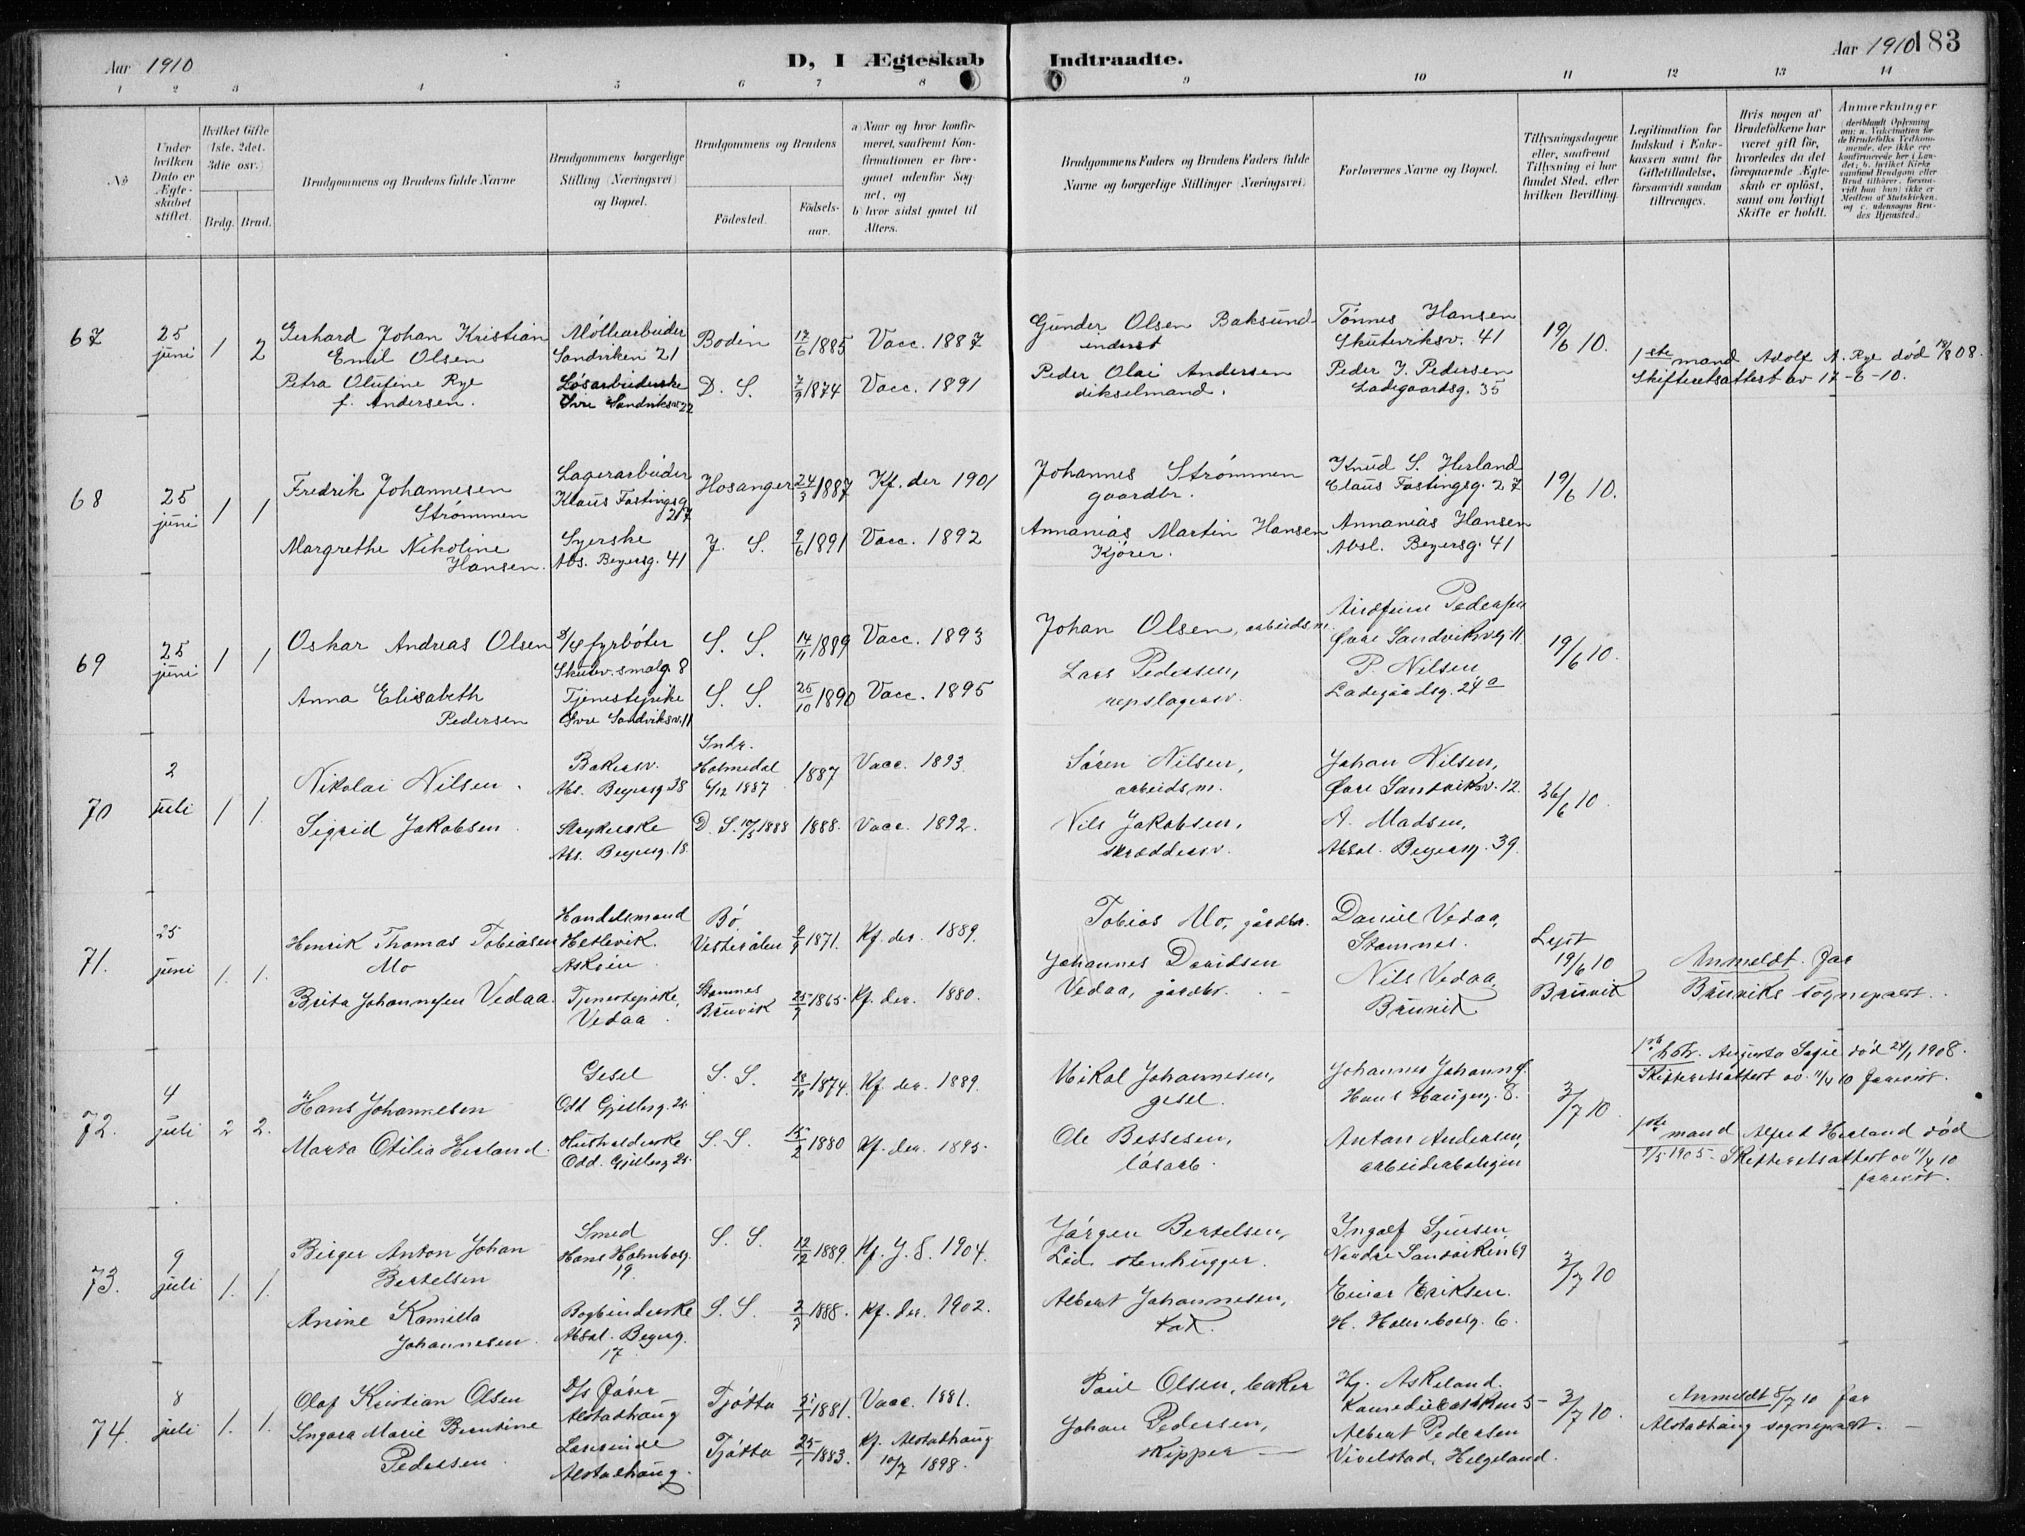 Aar 1910
D, I Ægteskab Indtraadte.
Aar 1910
183
1 2 3 4 5 6 7 8 9 10 11 12 13 14
No
Under hvilken Dato er Ægteskabet stiftet.
Hvilket Gifte (1ste, 2det, 3die osv.)
Brdg. Brud.
Brudgommens og Brudens fulde Navne
Brudgommens borgerlige Stilling (Næringsvei) og Bopæl.
Brudgommens og Brudens
Fødested.
Fødselsaar.
a) Naar og hvor konfirmeret, saafremt Konfirmationen er foregaaet udenfor Sognet, og
b) hvor sidst gaaet til Alters.
Brudgommens Faders og Brudens Faders fulde Navne og borgerlige Stillinger (Næringsvei)
Forlovernes Navne og Bopæl.
Tillysningsdagene eller, saafremt Tillysning ei har fundet Sted, efter hvilken Bevilling.
Legitimation for Indskud i Enkekassen samt for Giftetilladelse, forsaavidt saadan tiltrænges.
Hvis nogen af Brudefolkene har været gift før, hvorledes da det foregaaende Ægteskab er opløst, samt om lovligt Skifte er holdt.
Anmærkninger
67 25 juni 1 2
Gerhard Johan Kristian
Emil Olsen
Møllearbeider
Sandviken 21
Bodin 17/6 1885 Vacc. 1887
Gunder Olsen Baksund
inderst
Tønnes Hansen
Skuteviksv. 41
19/6 10.
Petra Olufine Rye
f. Andersen.
Løsarbeiderske
Øvre Sandviksv 22
D. S. 7/9 1874 Vacc. 1891
Peder Olai Andersen
dikselmand.
Peder J. Pedersen
Ladegaardsg. 35
1ste mand Adolf A. Rye død 19/8 08.
Skifteretsattest av 17-6-10.
68 25 juni 1 1
Fredrik Johannesen
Strømmen
Lagerarbeider
Klaus Fastingsg
27
Hosanger 24/3 1887 Kf. der 1901
Johannes Strømmen
gaardbr.
Knud S. Herland
Claus Fastingsg. 27
19/6 10.
Margrethe Nikoline
Hansen.
Syerske
Abs. Beyersg. 41
J. S. 9/6 1891 Vacc. 1892
Annanias Martin Hansen
Kjører.
Annanias Hansen
Absl. Beyersg. 41
69 25 juni 1 1
Oskar Andreas Olsen
D/S fyrbøter
Skutev. smalg 8
S. S. 14/11 1889 Vacc. 1893
Johan Olsen, arbeidsm.
Pedersen
Øvre Sandviksveg 11
19/6 10.
Anna Elisabeth
Pedersen
Tjenestepike
Øvre Sandviksv. 11
S. S. 25/10 1890 Vacc. 1895
Lars Pedersen,
repslagersv.
P. Nilsen
Ladegaardsg. 24a
70 2 juli 1 1.
Nikolai Nilsen.
Bakersv.
Abs. Beyersg 38
Indr.
Holmedal
6/12 1887
1887 Vacc. 1893
Søren Nilsen,
arbeidsm.
Johan Nilsen,
Øvre Sandviksv. 12.
26/6 10
Sigrid Jakobsen
Strykerske
Abs. Beyersg. 18.
D. S. 10/5 1888 1888. Vacc. 1892.
Nils Jakobsen,
skræddersv.
A. Madsen,
Absal. Beyersg. 39.
71. 25 juni 1. 1.
Henrik Thomas Tobiasen
Mo
Handelsmand
Hetlevik.
Askøen
Bø.
Vesterålen 9/9 1871. Kf. der. 1889.
Tobias Mo, gårdbr.
Daniel Vedaa,
Stamnes.
Lyst
19/6 10
Bruvik
Anmeldt far
Bruviks sogneprest.
Brita Johannesen Vedaa.
Tjenestepike,
Vedaa
Stamnes
Bruvik 25/7 1865. Kf. der. 1880.
Johannes Davidsen
Vedaa, gårdbr.
Nils Vedaa
Bruvik
72. 4 juli 2 2.
Hans Johannesen
Gesel
Odd Gjelsvg. 25.
S. S. 28/10 1874. Kf. der. 1889.
Mikal Johannesen,
gesel.
Johannes
Hans Haugesg. 8.
3/7 10
Augusta Sofie død 24/1 1908.
Skifteretsattest av. 11/4 10 forevist.
Marta Otilia Herland.
Husholderske
Odd. Gjelsvg 25.
S. S. 15/2 1880 Kf. der. 1895.
Ole Bessesen,
løsarb.
Anton Andersen,
arbeiderboligen
1ste mand Alfred Herland død
9/5 1905 - Skifteretsattest av 11/4 10
forevist.
73. 9 juli 1. 1.
Birger Anton Johan
Bertelsen
Smed
Hans Holmbosg.
19.
S. S. 12/12 1889. Kf. J. S. 1904.
Jørgen Bertelsen,
Lid stenhugger.
Ingolf Sjursen,
Nedre Sandviken 69
3/7 10
Anine Kamilla
Johannesen.
Bogbinderske
Absal. Beyersg.
17.
S. S 2/7 1888. Kf. der. 1902.
Albert Johannesen,
Einar Eriksen.
H. Holmbosg. 6.
74. 8 juli 1. 1.
Olaf Kristian Olsen
D/S fører
Alstadhaug
Tjøtta 5/7 1881. Vacc. 1881.
Paul Olsen, baker
Hj. Askeland.
Komediebakken 5
3/7 10.
Anmeldt 8/7 10 far
Alstadhaug sogneprest.
Ingara Marie Berntine
Pedersen
Alstadhaug.
Tjøtta 25/1 1883.
Kf. Alstadhaug
10/7 1898.
Johan Pedersen,
skipper
Albert Pedersen
Vivelstad, Helgeland.